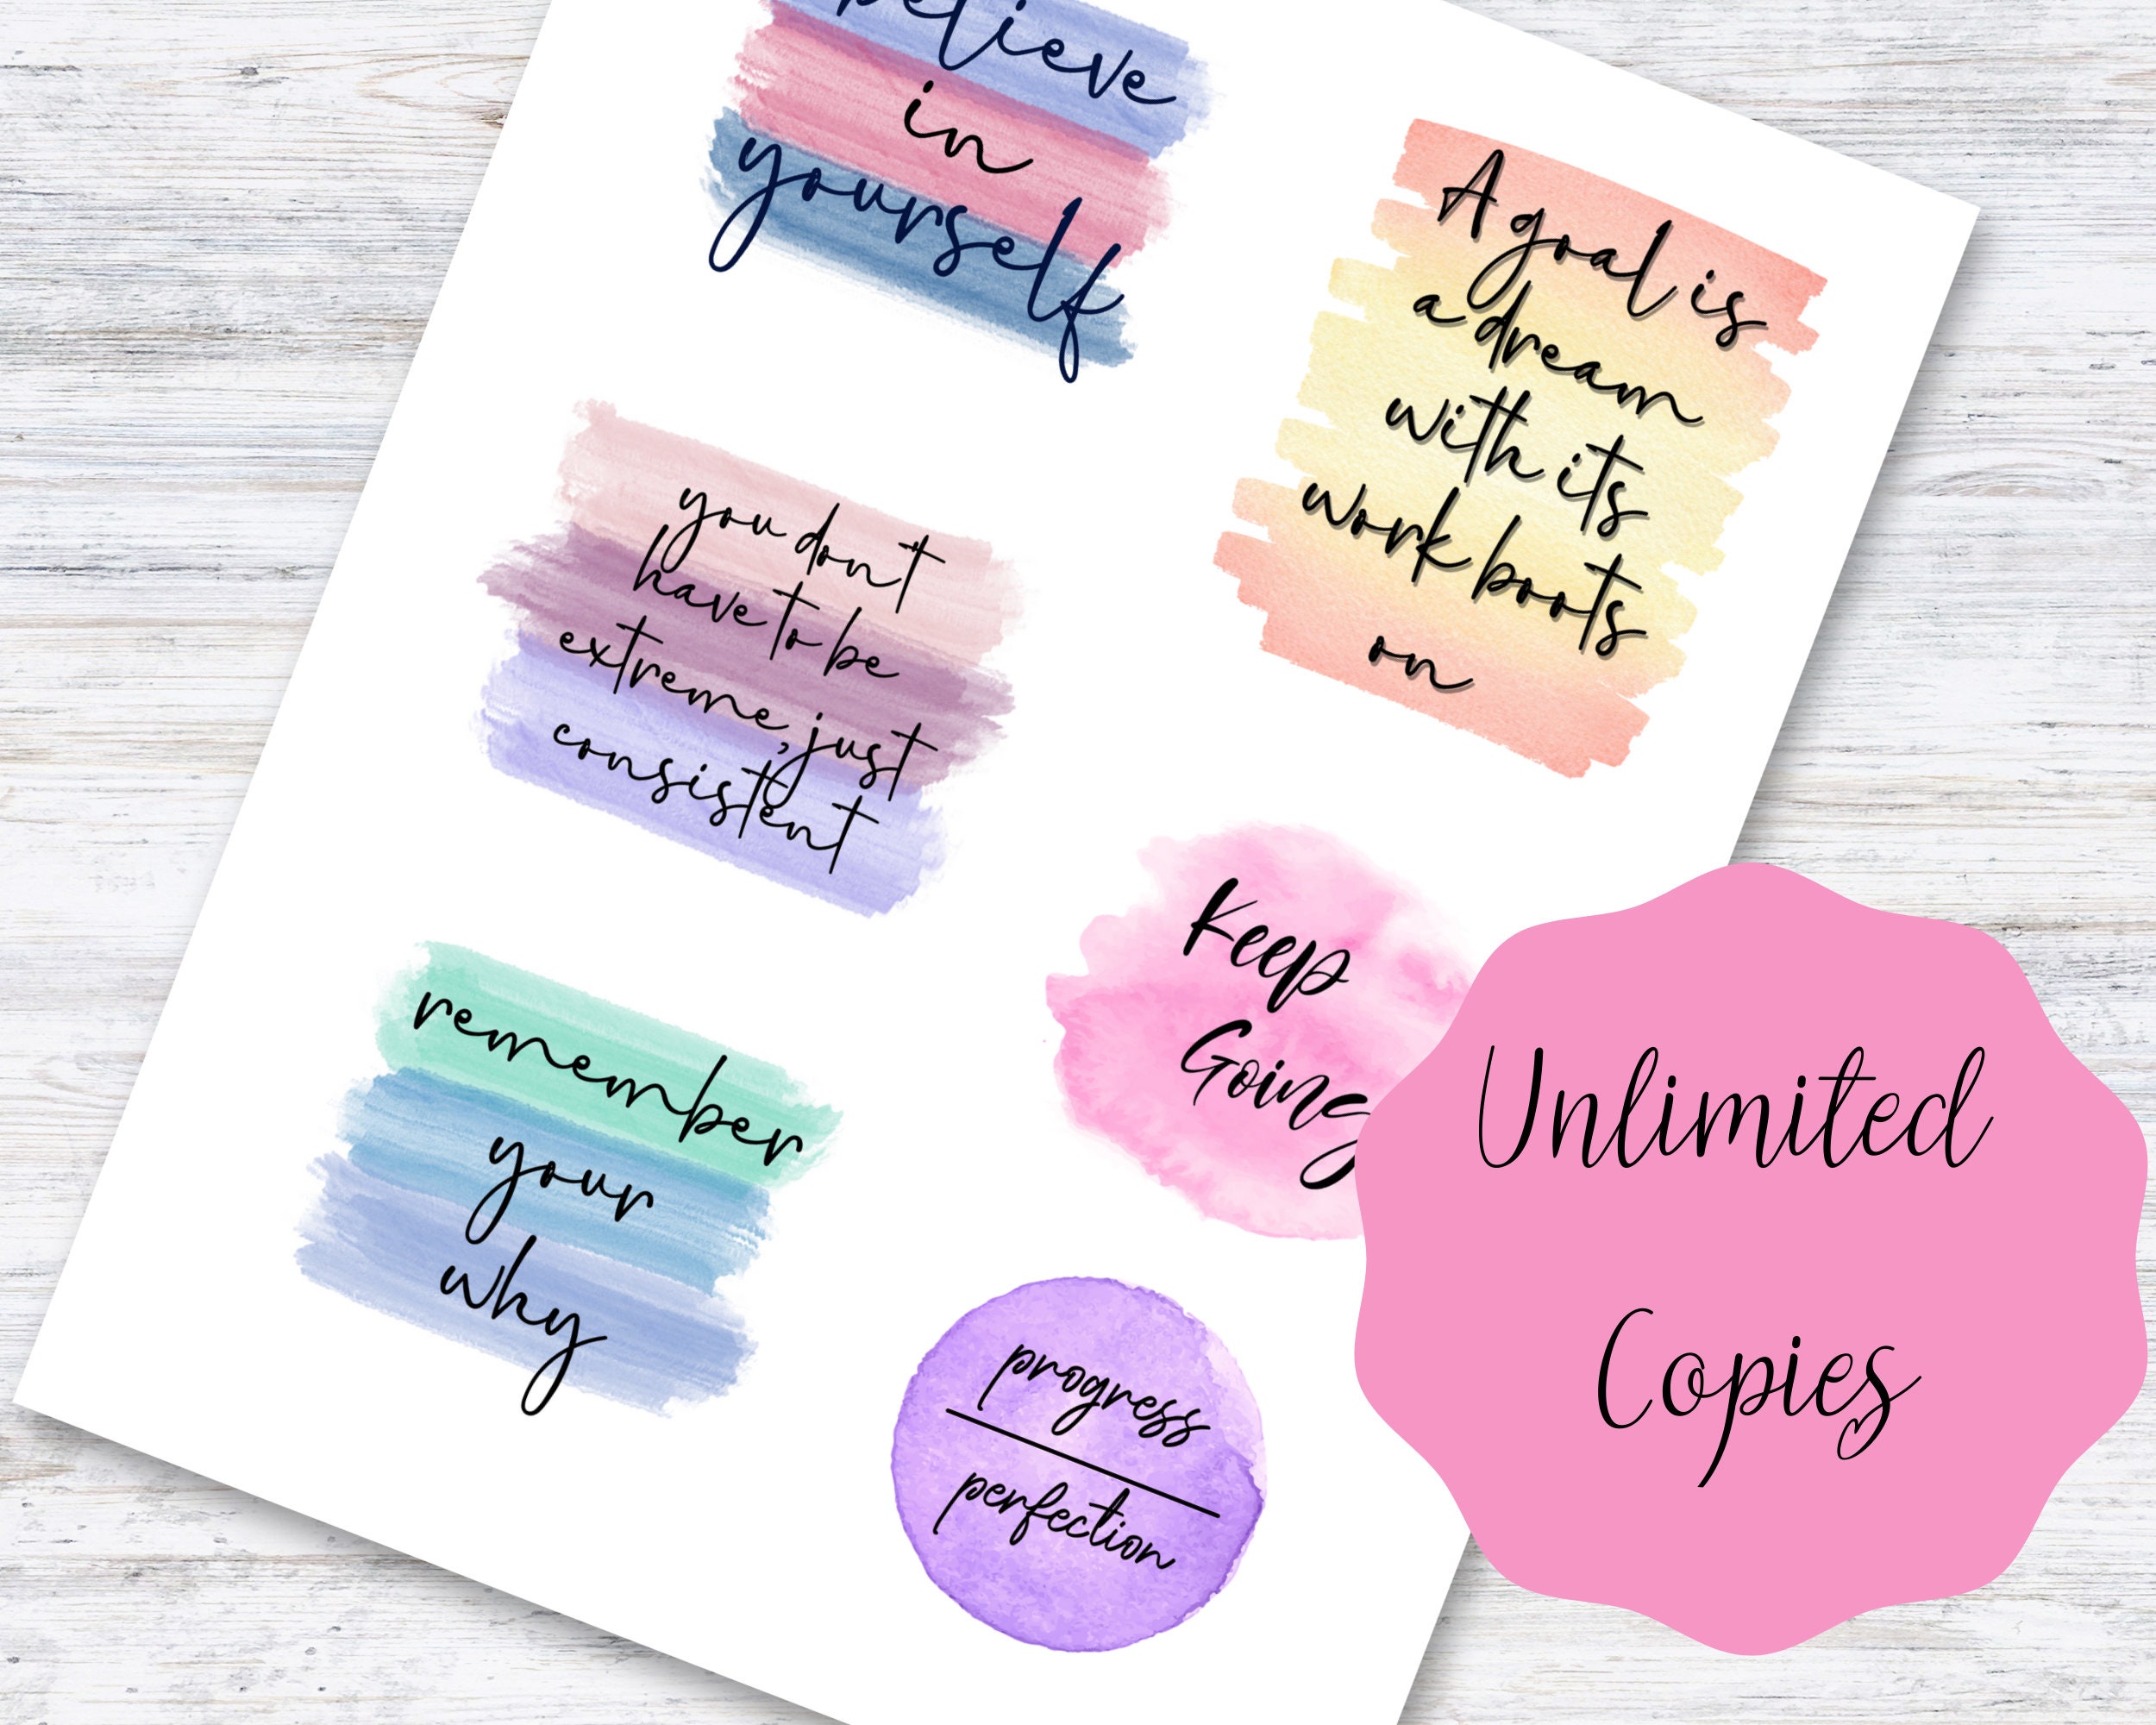 believe
in
yourself
A goal is
a dream
with its
work boots
on
you dont
have to be
extreme, just
consistent
Keep
Going
remember
your
why
progress
perfection
Unlimited
Copies